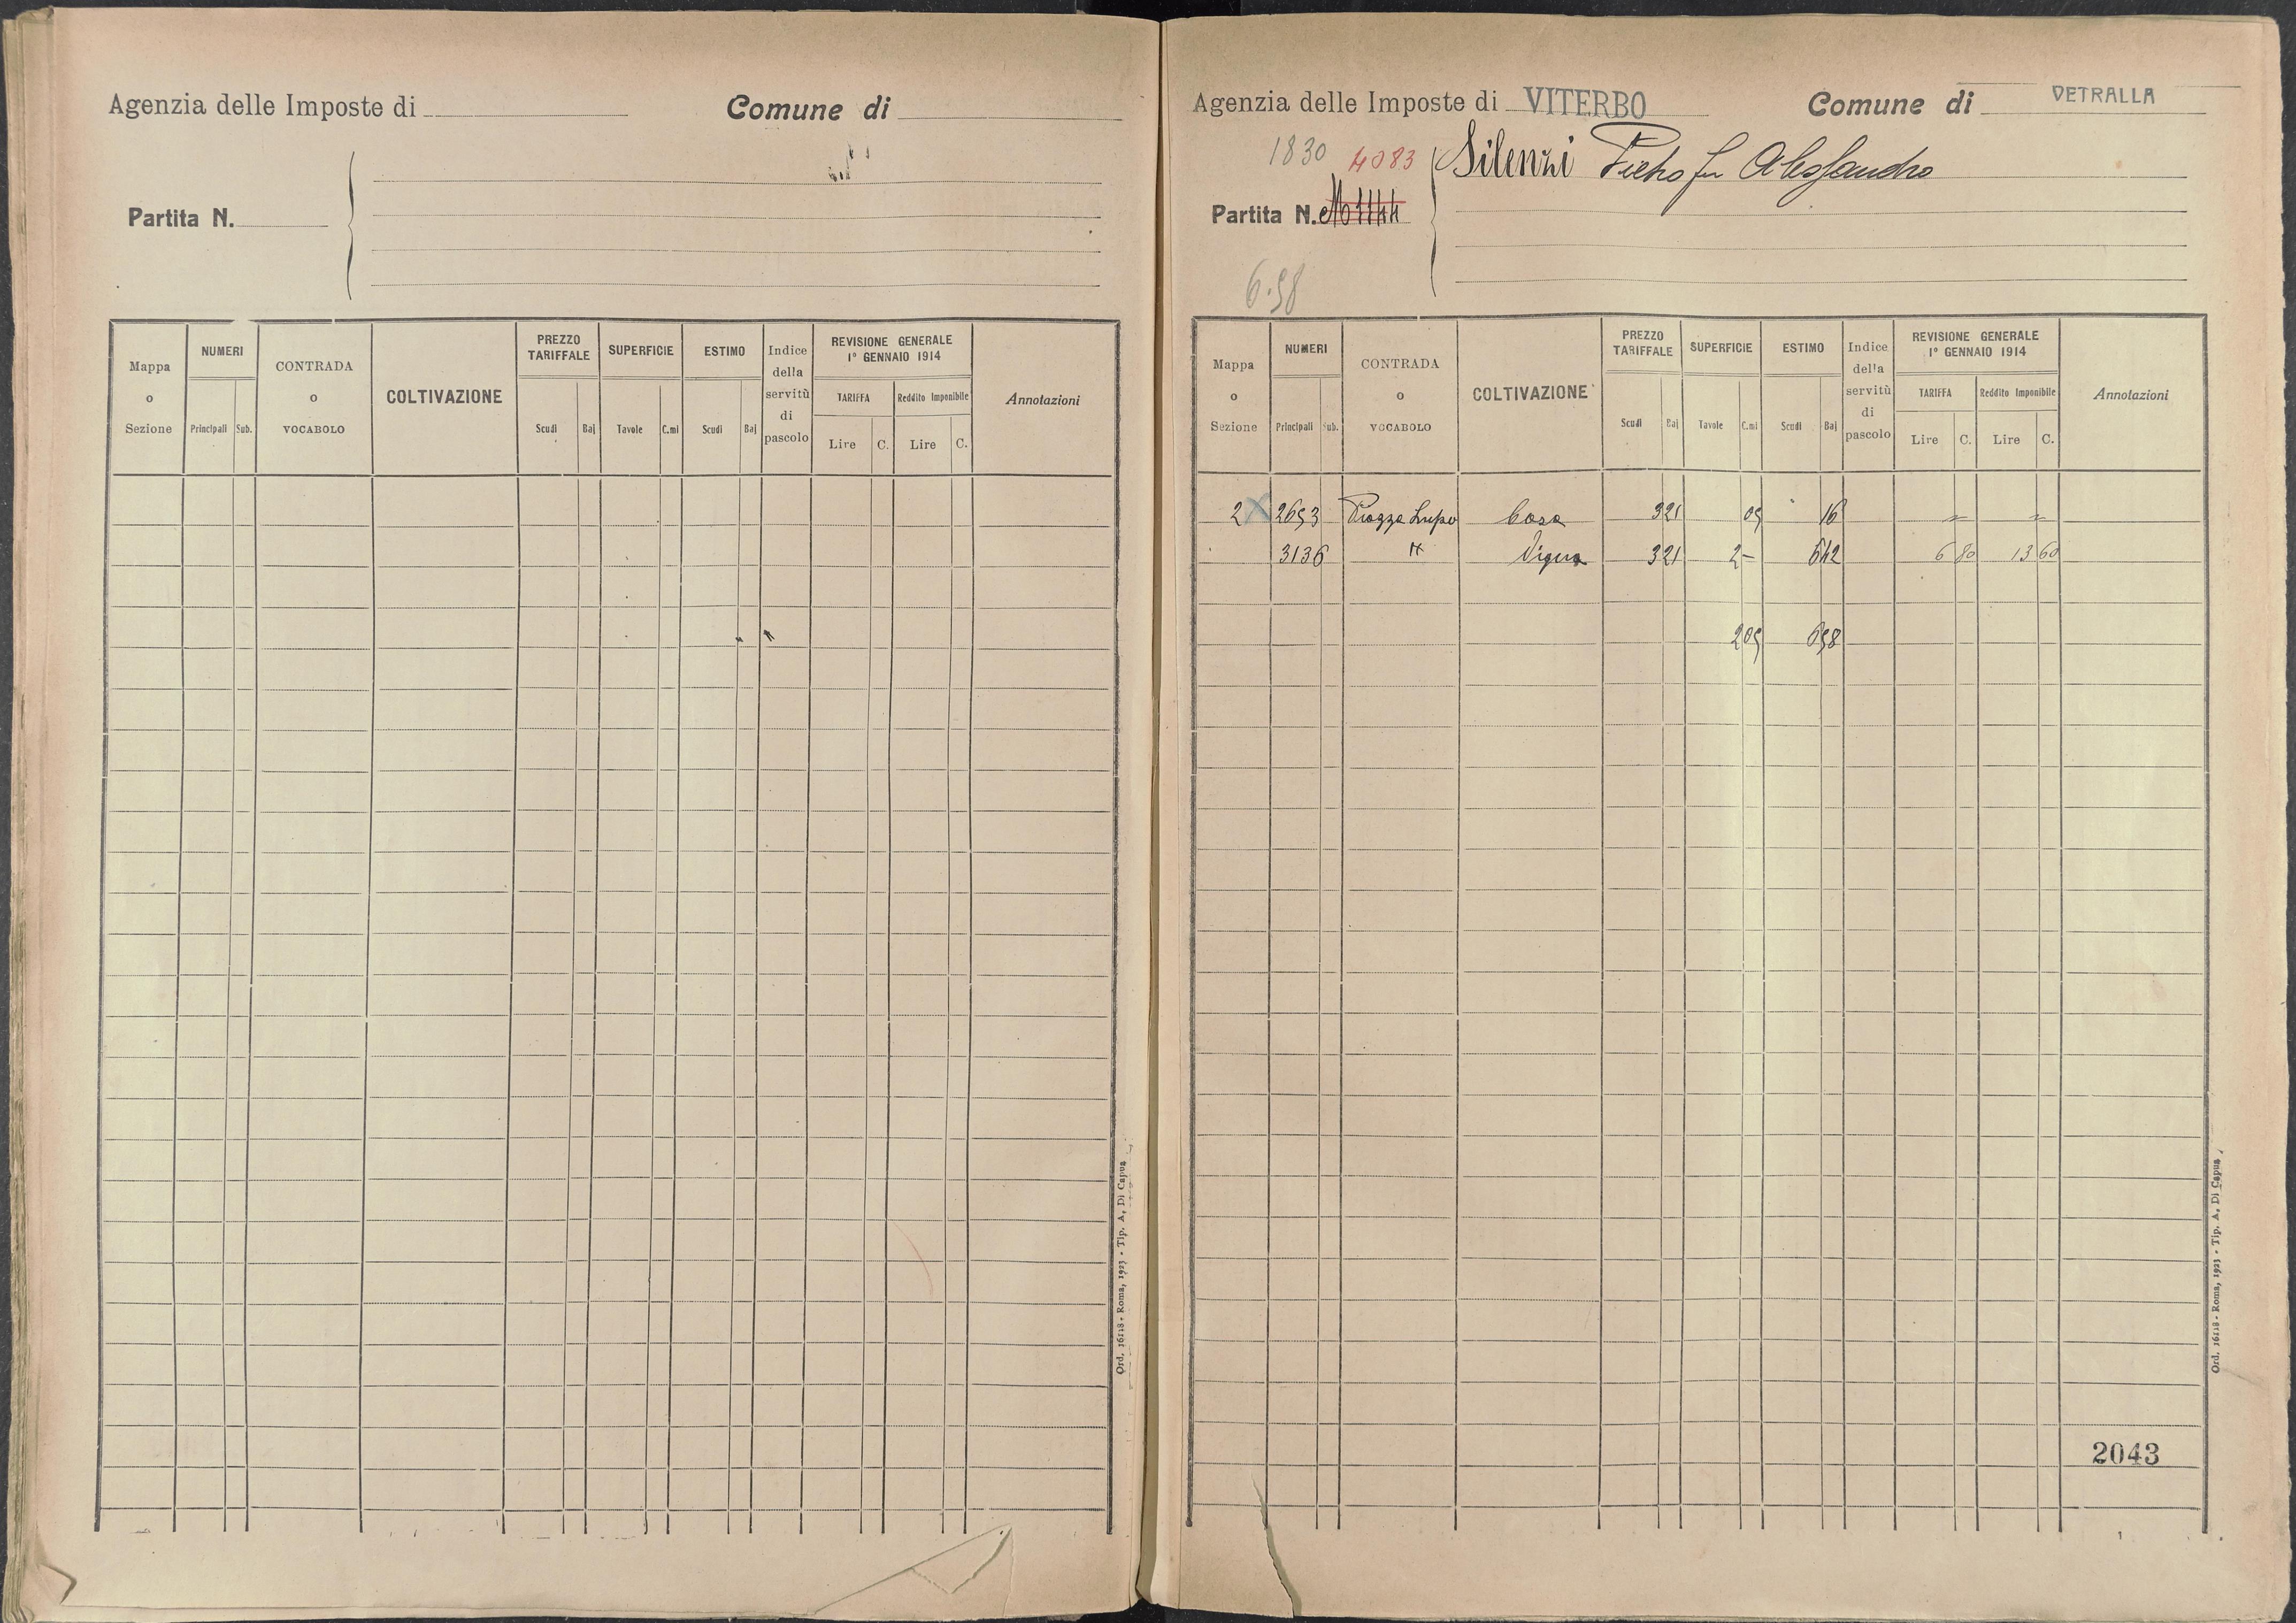 Agenzia delle Imposte di
Comune di
Partita N.
Mappa o Sezione
NUMERI
Principali Sub.
CONTRADA o VOCABOLO
COLTIVAZIONE
PREZZO TARIFFALE
Scudi Baj
SUPERFICIE
Tavole C.mi
ESTIMO
Scudi Baj
Indice della servitù di pascolo
REVISIONE GENERALE 1° GENNAIO 1914
TARIFFA
Lire C.
Reddito Imponibile
Lire C.
Annotazioni
Ord. 16118 - Roma, 1923 - Tip. A. Di Capua
Agenzia delle Imposte di VITERBO
Comune di VETRALLA
1830 4083
Silenzi Pietro fu Alessandro
Partita N.
6.58
Mappa o Sezione
NUMERI
Principali Sub.
CONTRADA o VOCABOLO
COLTIVAZIONE
PREZZO TARIFFALE
Scudi Baj
SUPERFICIE
Tavole C.mi
ESTIMO
Scudi Baj
Indice della servitù di pascolo
REVISIONE GENERALE 1° GENNAIO 1914
TARIFFA
Lire C.
Reddito Imponibile
Lire C.
Annotazioni
2 X 2653 Piazza Lupo Casa 321 05 16
3136 Vigna 321 2- 642 6 80 13 60
205 658
2043
Ord. 16118 - Roma, 1923 - Tip. A. Di Capua